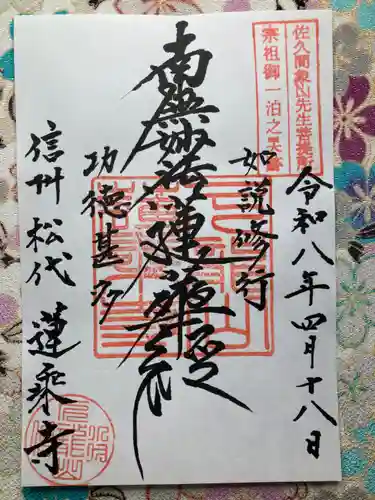 佐久間象山先生菩提所
宗祖御一泊之霊場
令和八年四月十八日
如説修行
南無妙法蓮華経
功徳甚多
信州松代 蓮乘寺